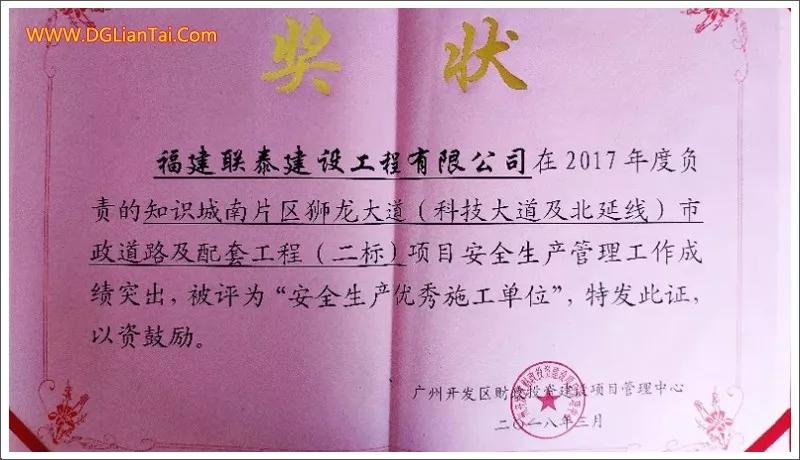 www.DGLianTai.Com
奖状
福建联泰建设工程有限公司在2017年度负
责的知识城南片区狮龙大道（科技大道及北延线）市
政道路及配套工程（二标）项目安全生产管理工作成
绩突出，被评为“安全生产优秀施工单位”，特发此证，
以资鼓励。
广州开发区财政投资建设项目管理中心
二〇一八年三月